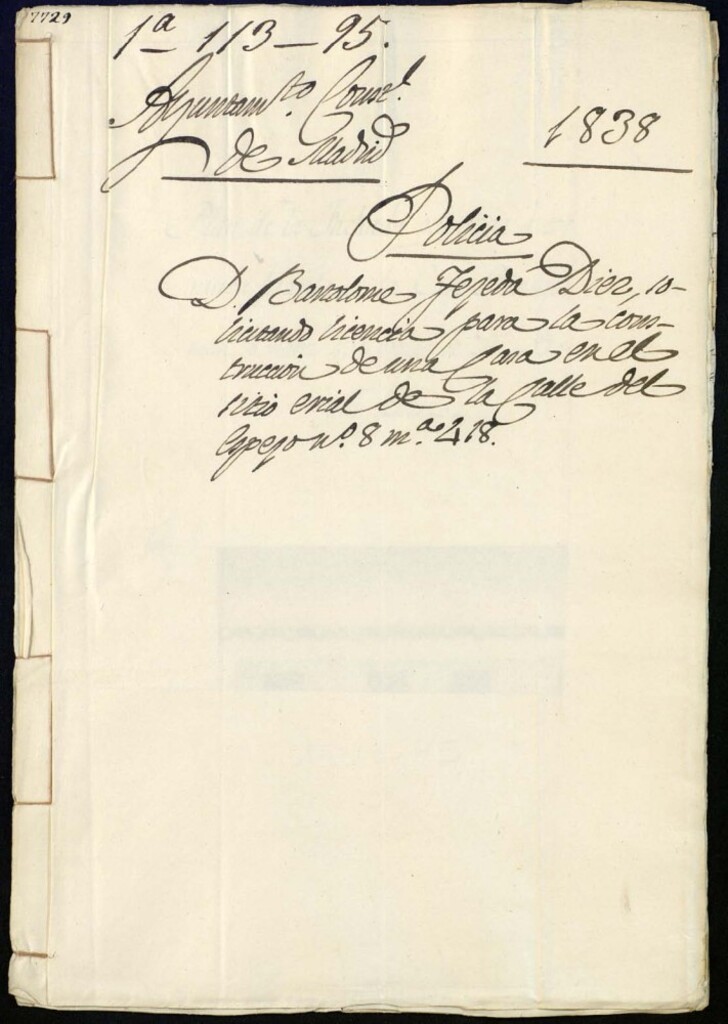 7729
1ª 113-95.
Ayuntamto. Constl.
de Madrid
1838
Policia
D. Bartolome Tejeda Diez, so-
licitando licencia para la cons-
truccion de una Casa en el
sitio erial de la Calle del
Espejo nº. 8 mª. 418.